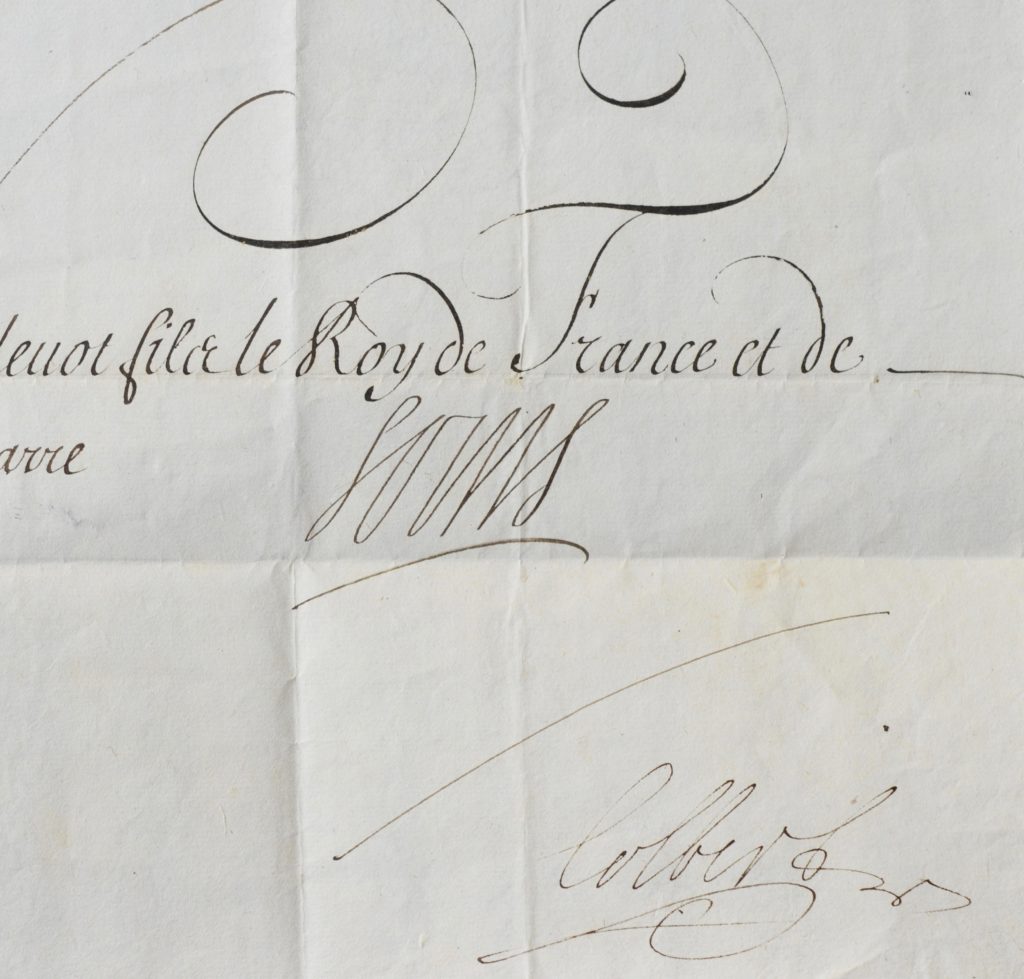 deuot filz le Roy de France et de
arre
Louis
Colbert